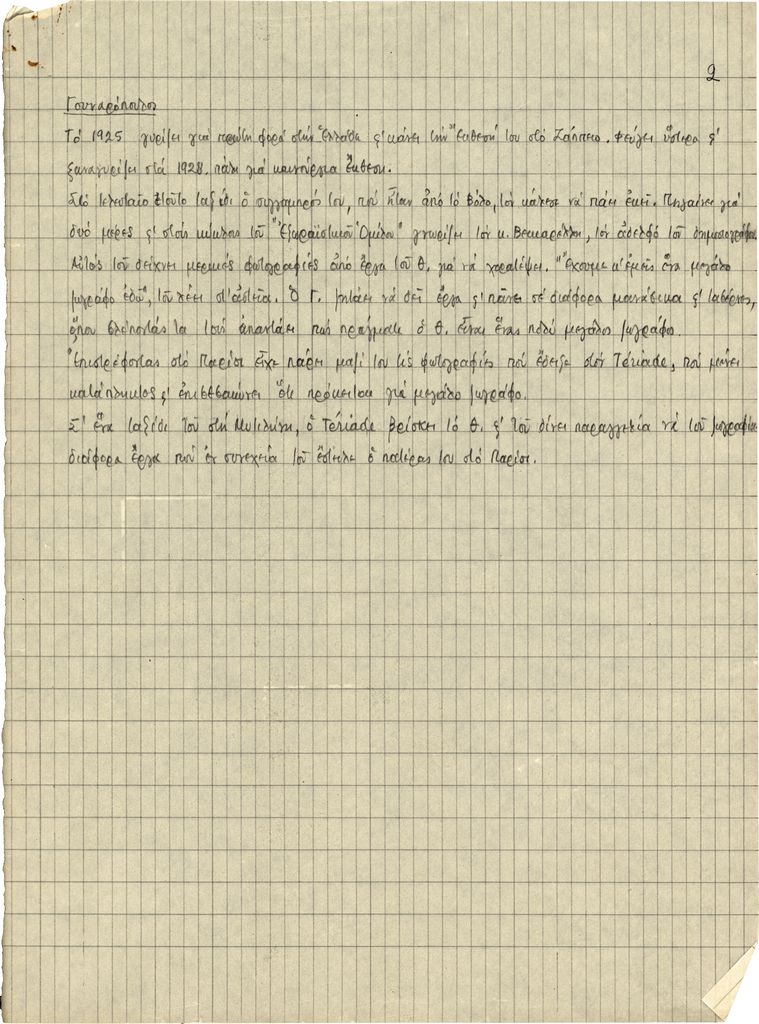 2
Γουναρόπουλος
Τό 1925 γυρίζει γιά πρώτη φορά στήν Ἑλλάδα ϛ' κάνει τήν Ἔκθεσή του στό Ζάππειο. Φεύγει ὕστερα ϛ'
ξαναγυρίζει στά 1928. πάλι γιά καινούργια Ἔκθεση.
Στό τελευταῖο τοῦτο ταξίδι ὁ συγγαμπρός του, πού ἦταν ἀπό τό Βόλο, τόν κάλεσε νά πάει ἐκεῖ. Πηγαίνει γιά
δυό μέρες ϛ' στούς κύκλους τοῦ "Ἐξωραϊστικοῦ Ὁμίλου" γνωρίζει τόν κ. τόν ἀδελφό τοῦ δημοσιογράφου.
Αὐτός τοῦ δείχνει μερικές φωτογραφίες ἀπό ἔργα τοῦ Θ. γιά νά χορατέψει. "Ἔχουμε κ' ἐμεῖς ἕνα μεγάλο
ζωγράφο ἐδῶ", τοῦ λέει στ' ἀστεῖα. Ὁ Γ. ζητάει νά δεῖ ἔργα ϛ' πᾶνε σέ διάφορα μανάβικα ϛ' ταβέρνες,
ὅπου βλέποντάς τα τούς ἀπαντάει πώς πράγματι ὁ Θ. εἶναι ἕνας πολύ μεγάλος ζωγράφος.
Ἐπιστρέφοντας στό Παρίσι εἶχε πάρει μαζί του τίς φωτογραφίες πού ἔδειξε στόν Tériade, πού μένει
κατάπληκτος ϛ' ἐπιβεβαιώνει ὅτι πρόκειται γιά μεγάλο ζωγράφο.
Σ' ἕνα ταξίδι του στή Μυτιλήνη, ὁ Tériade βρίσκει τό Θ. ϛ' τοῦ δίνει παραγγελία νά τοῦ ζωγραφίσει
διάφορα ἔργα πού ἐν συνεχεία τοῦ ἔστειλε ὁ πατέρας του στό Παρίσι.